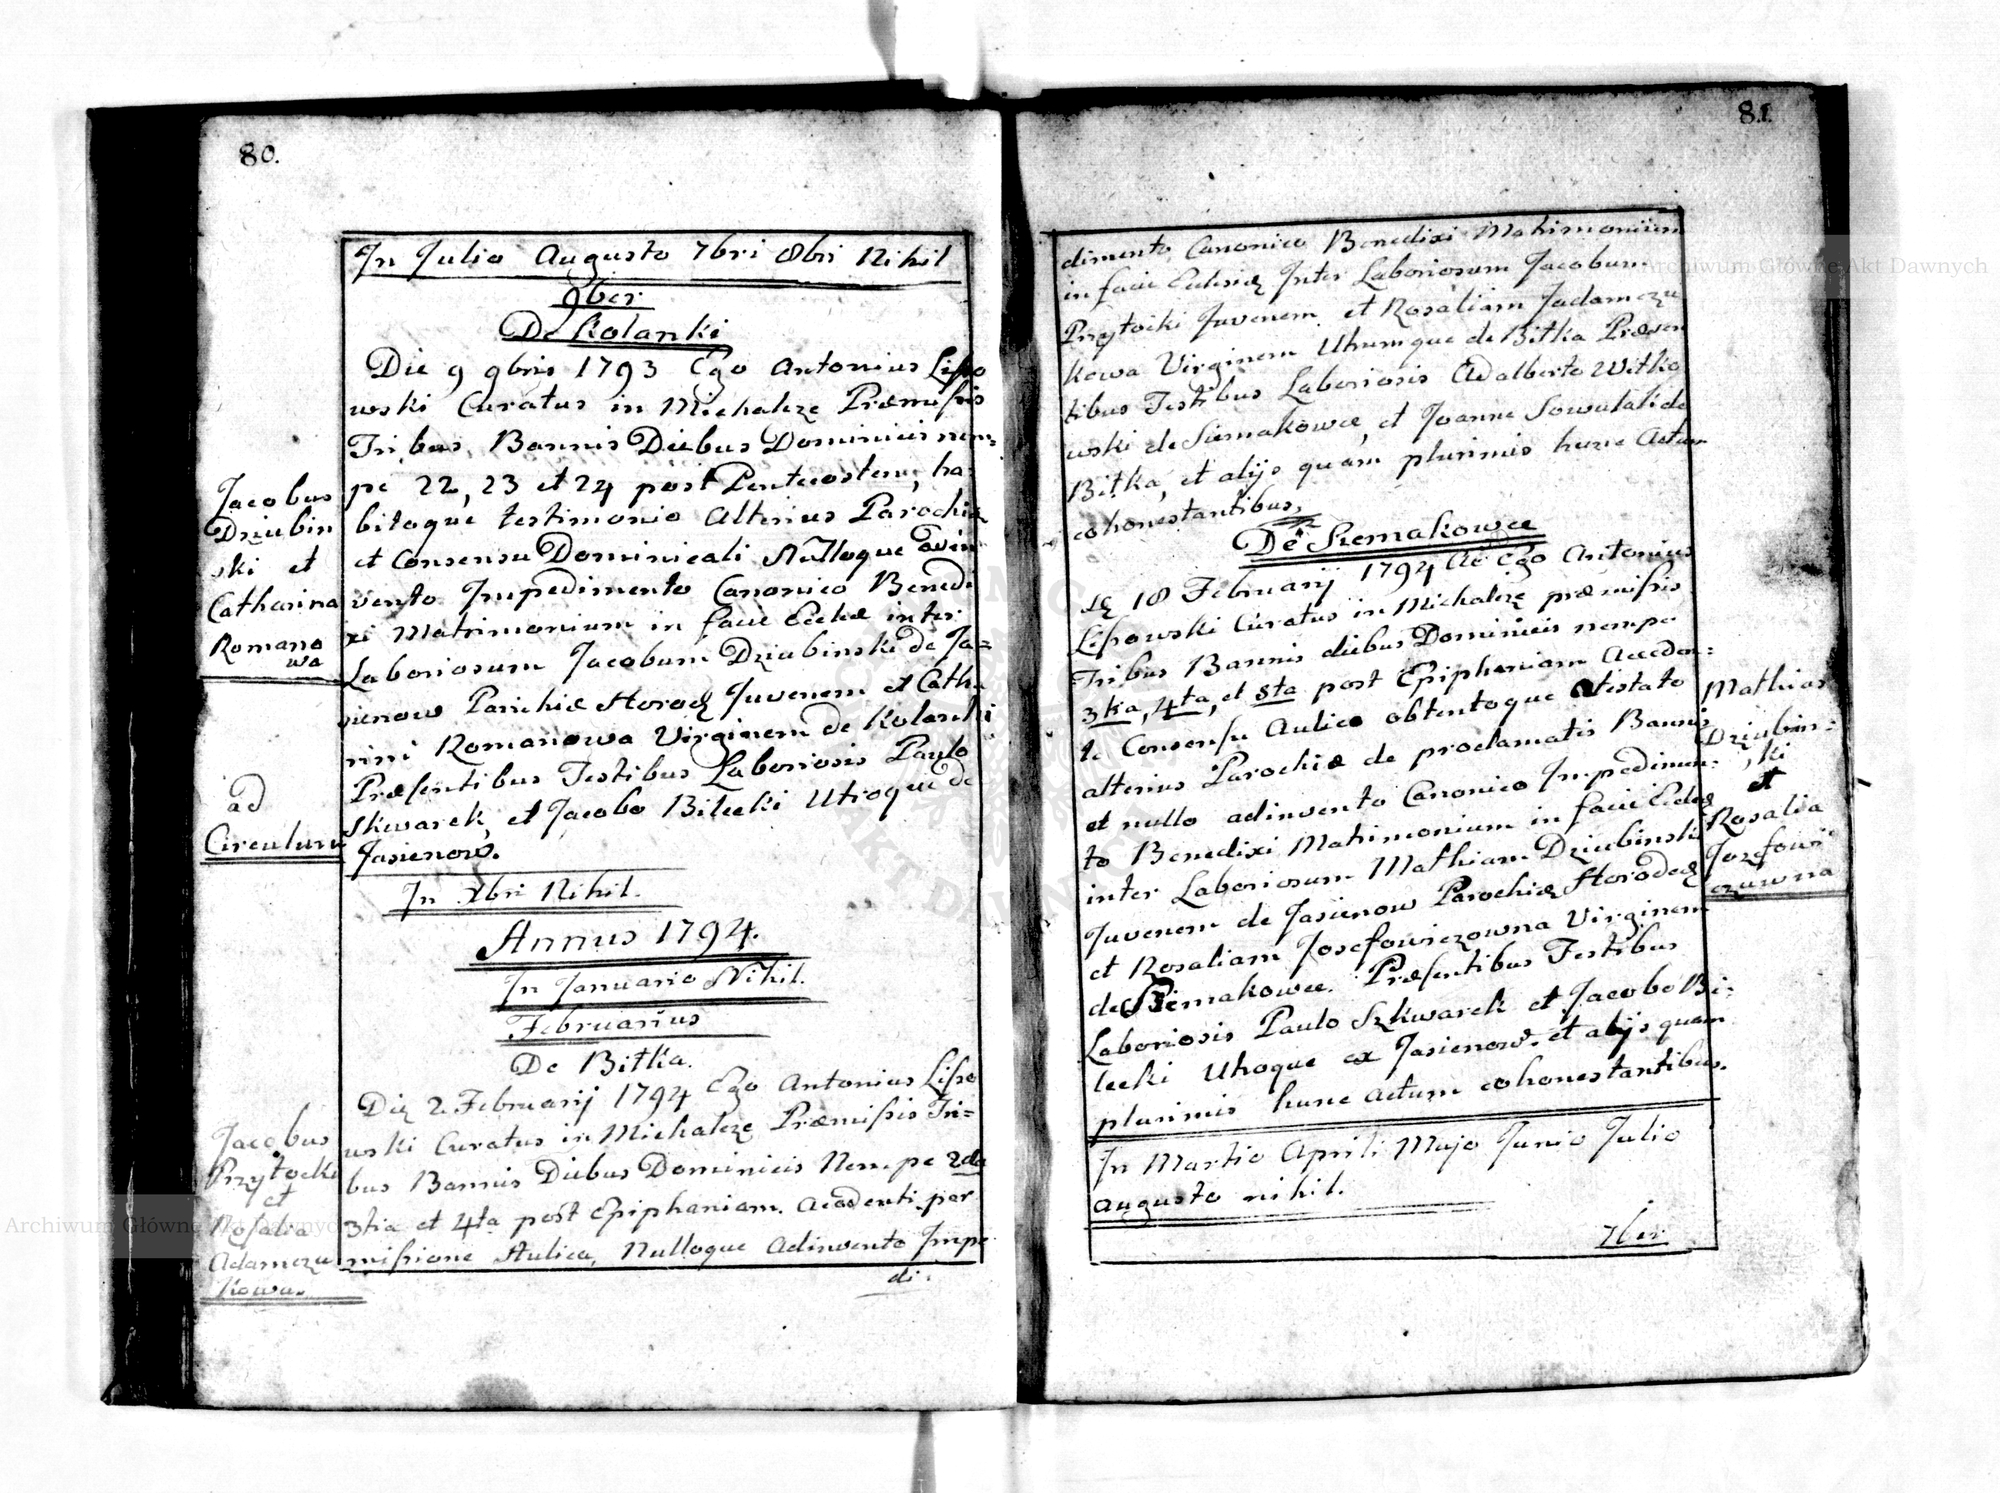 80.
In Julio Augusto 7bri 8bri Nihil
9ber
De Kolanki
Die 9 9bris 1793 Ego Antonius Lipo
wski Curatus in Michalcze Præmissis
Tribus Bannis Diebus Dominicis nem=
pe 22, 23 et 24 post Pentecostem, ha-
bitoque testimonio Alterius Parochiæ
et Consensu Dominicali Nulloque adin
vento Impedimento Canonico Benedi
xi Matrimonium in facie Eccłæ inter
Laboriosum Jacobum Dziubinski de Ja=
sienow Parichiæ Horod Juvenem et Catha
rini Romanowa Virginem de Kolanki
Præsentibus Testibus Laboriosis Paulo
Skwarek, et Jacobo Bilecki Utroque de
Jasienow.
Jacobus
Dziubin
ski et
Catharina
Romano
wa
ad
Circulum
In Xbri Nihil.
Annus 1794.
In Januario Nihil.
Februarius
De Bitka.
Die 2 Februarij 1794 Ego Antonius Lipo
wski Curatus in Michalcze Præmissis Tri=
bus Bannis Diebus Dominicis Nempe 2da
3tia et 4ta post Epiphaniam. Accedenti per
missione Aulica, Nulloque Adinvento Impe
di:
Jacobus
Przytocki
et
Rosalia
Adamczu
kowa.
81.
dimento Canonico Benedixi Matrimonium
in facie Ecclesiæ Inter Laboriosum Jacobum
Przytocki Juvenem et Rosaliam Jadamczu
kowa Virginem Utrumque de Bitka Præsen
tibus Testibus Laboriosis Adalberto Witko
wski de Siemakowce, et Joanne Sowulali de
Bitka, et alijs quam plurimis hunc Actum
cohonestantibus.
De Siemakowce
18 Februarij 1794 Ego Antonius
Lipowski Curatus in Michalcze præmissis
Tribus Bannis diebus Dominicis nempe
3tia, 4ta, et 5ta post Epiphaniam Acceden=
te Consensu Aulico obtentoque Atestato
alterius Parochiæ de proclamatis Bannis
et nullo adinvento Canonico Impedimen=
to Benedixi Matrimonium in facie Eccłæ
inter Laboriosum Mathiam Dziubinski
Juvenem de Jasienow Parochiæ Horod
et Rosaliam Josefowiczowna Virginem
de Siemakowce. Præsentibus Testibus
Laboriosis Paulo Szkwarek et Jacobo Bi=
lecki Utroque ex Jasienow. et alijs quam
plurimis hunc Actum cohonestantibus.
Mathias
Dziubin=
ski
et
Rosalia
Jozefowi
czowna
In Martio Aprili Majo Junio Julio
Augusto nihil.
7ber
Archiwum Główne Akt Dawnych
Archiwum Główne Akt Dawnych